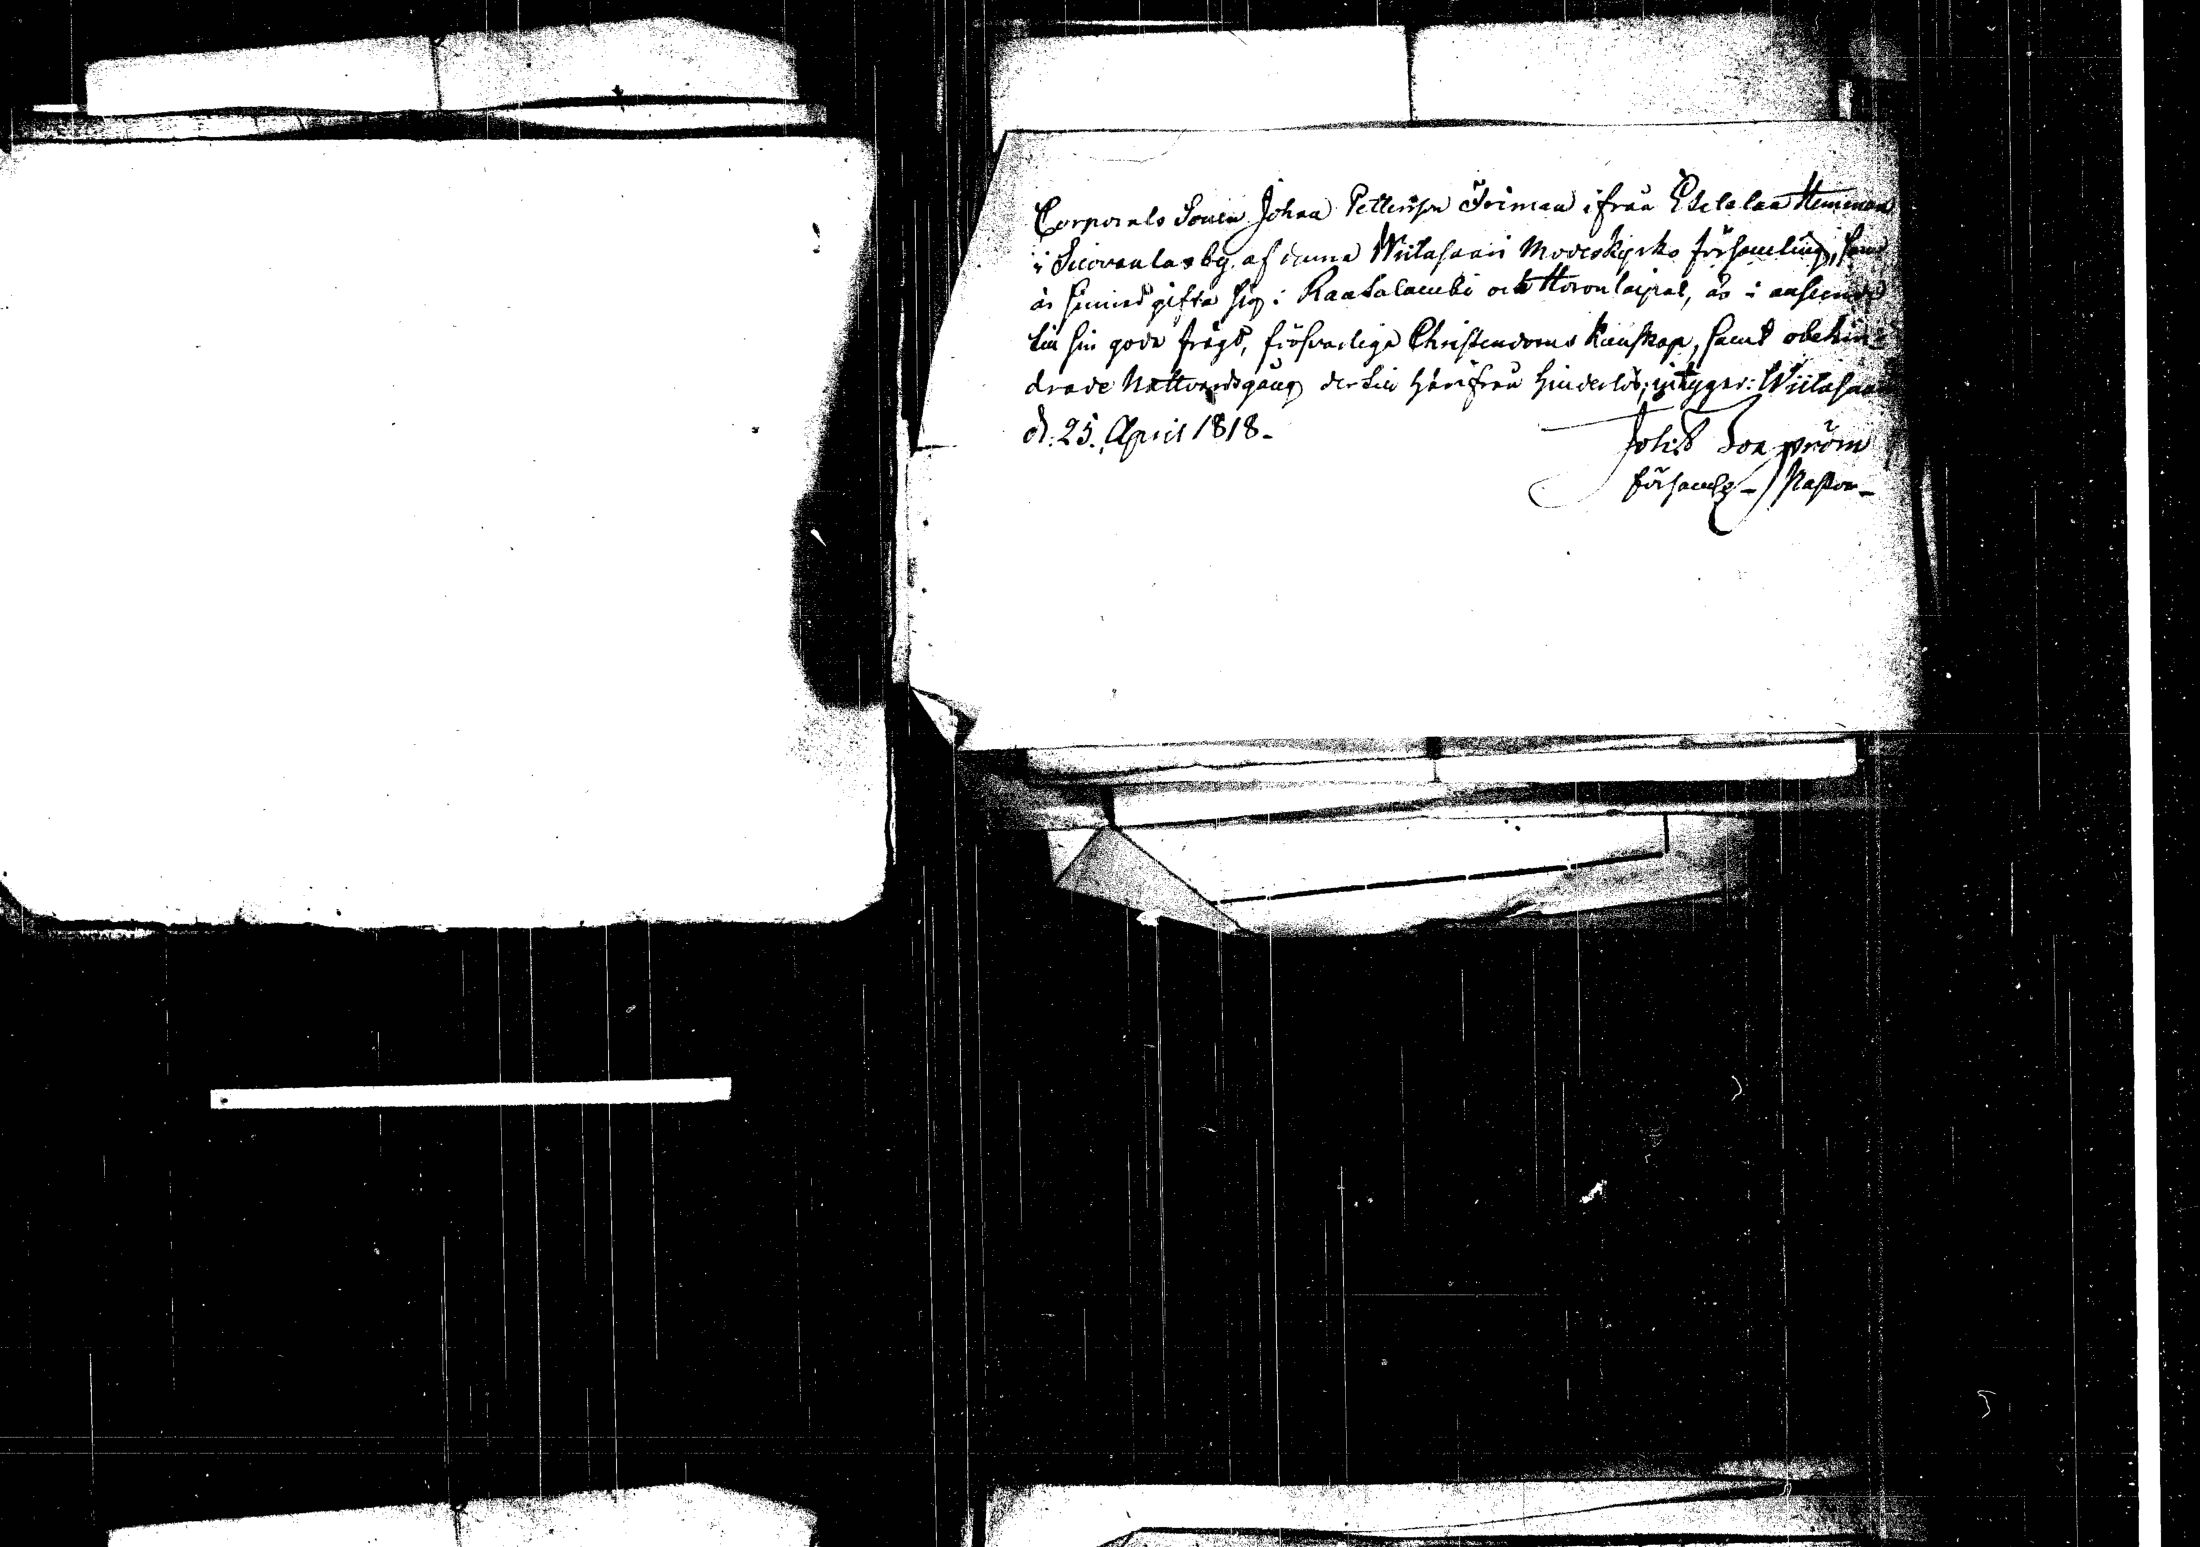 Corporals Sonen Johan Pettersson Friman ifrån Etelalan Hemman
i Suovanlax by, af denna Wiitasaari Moderkyrko församling, som
är sinnad gifta sig i Rautalambi och Koronlax, är i anseende
till sin goda frägd, försvarliga Christendoms kunskap, samt obehin=
drade Nattvardsgång der till härifrån hinderlös; intygar: Wiitasaari
d. 25. April 1818.
Församlg- Pastor-